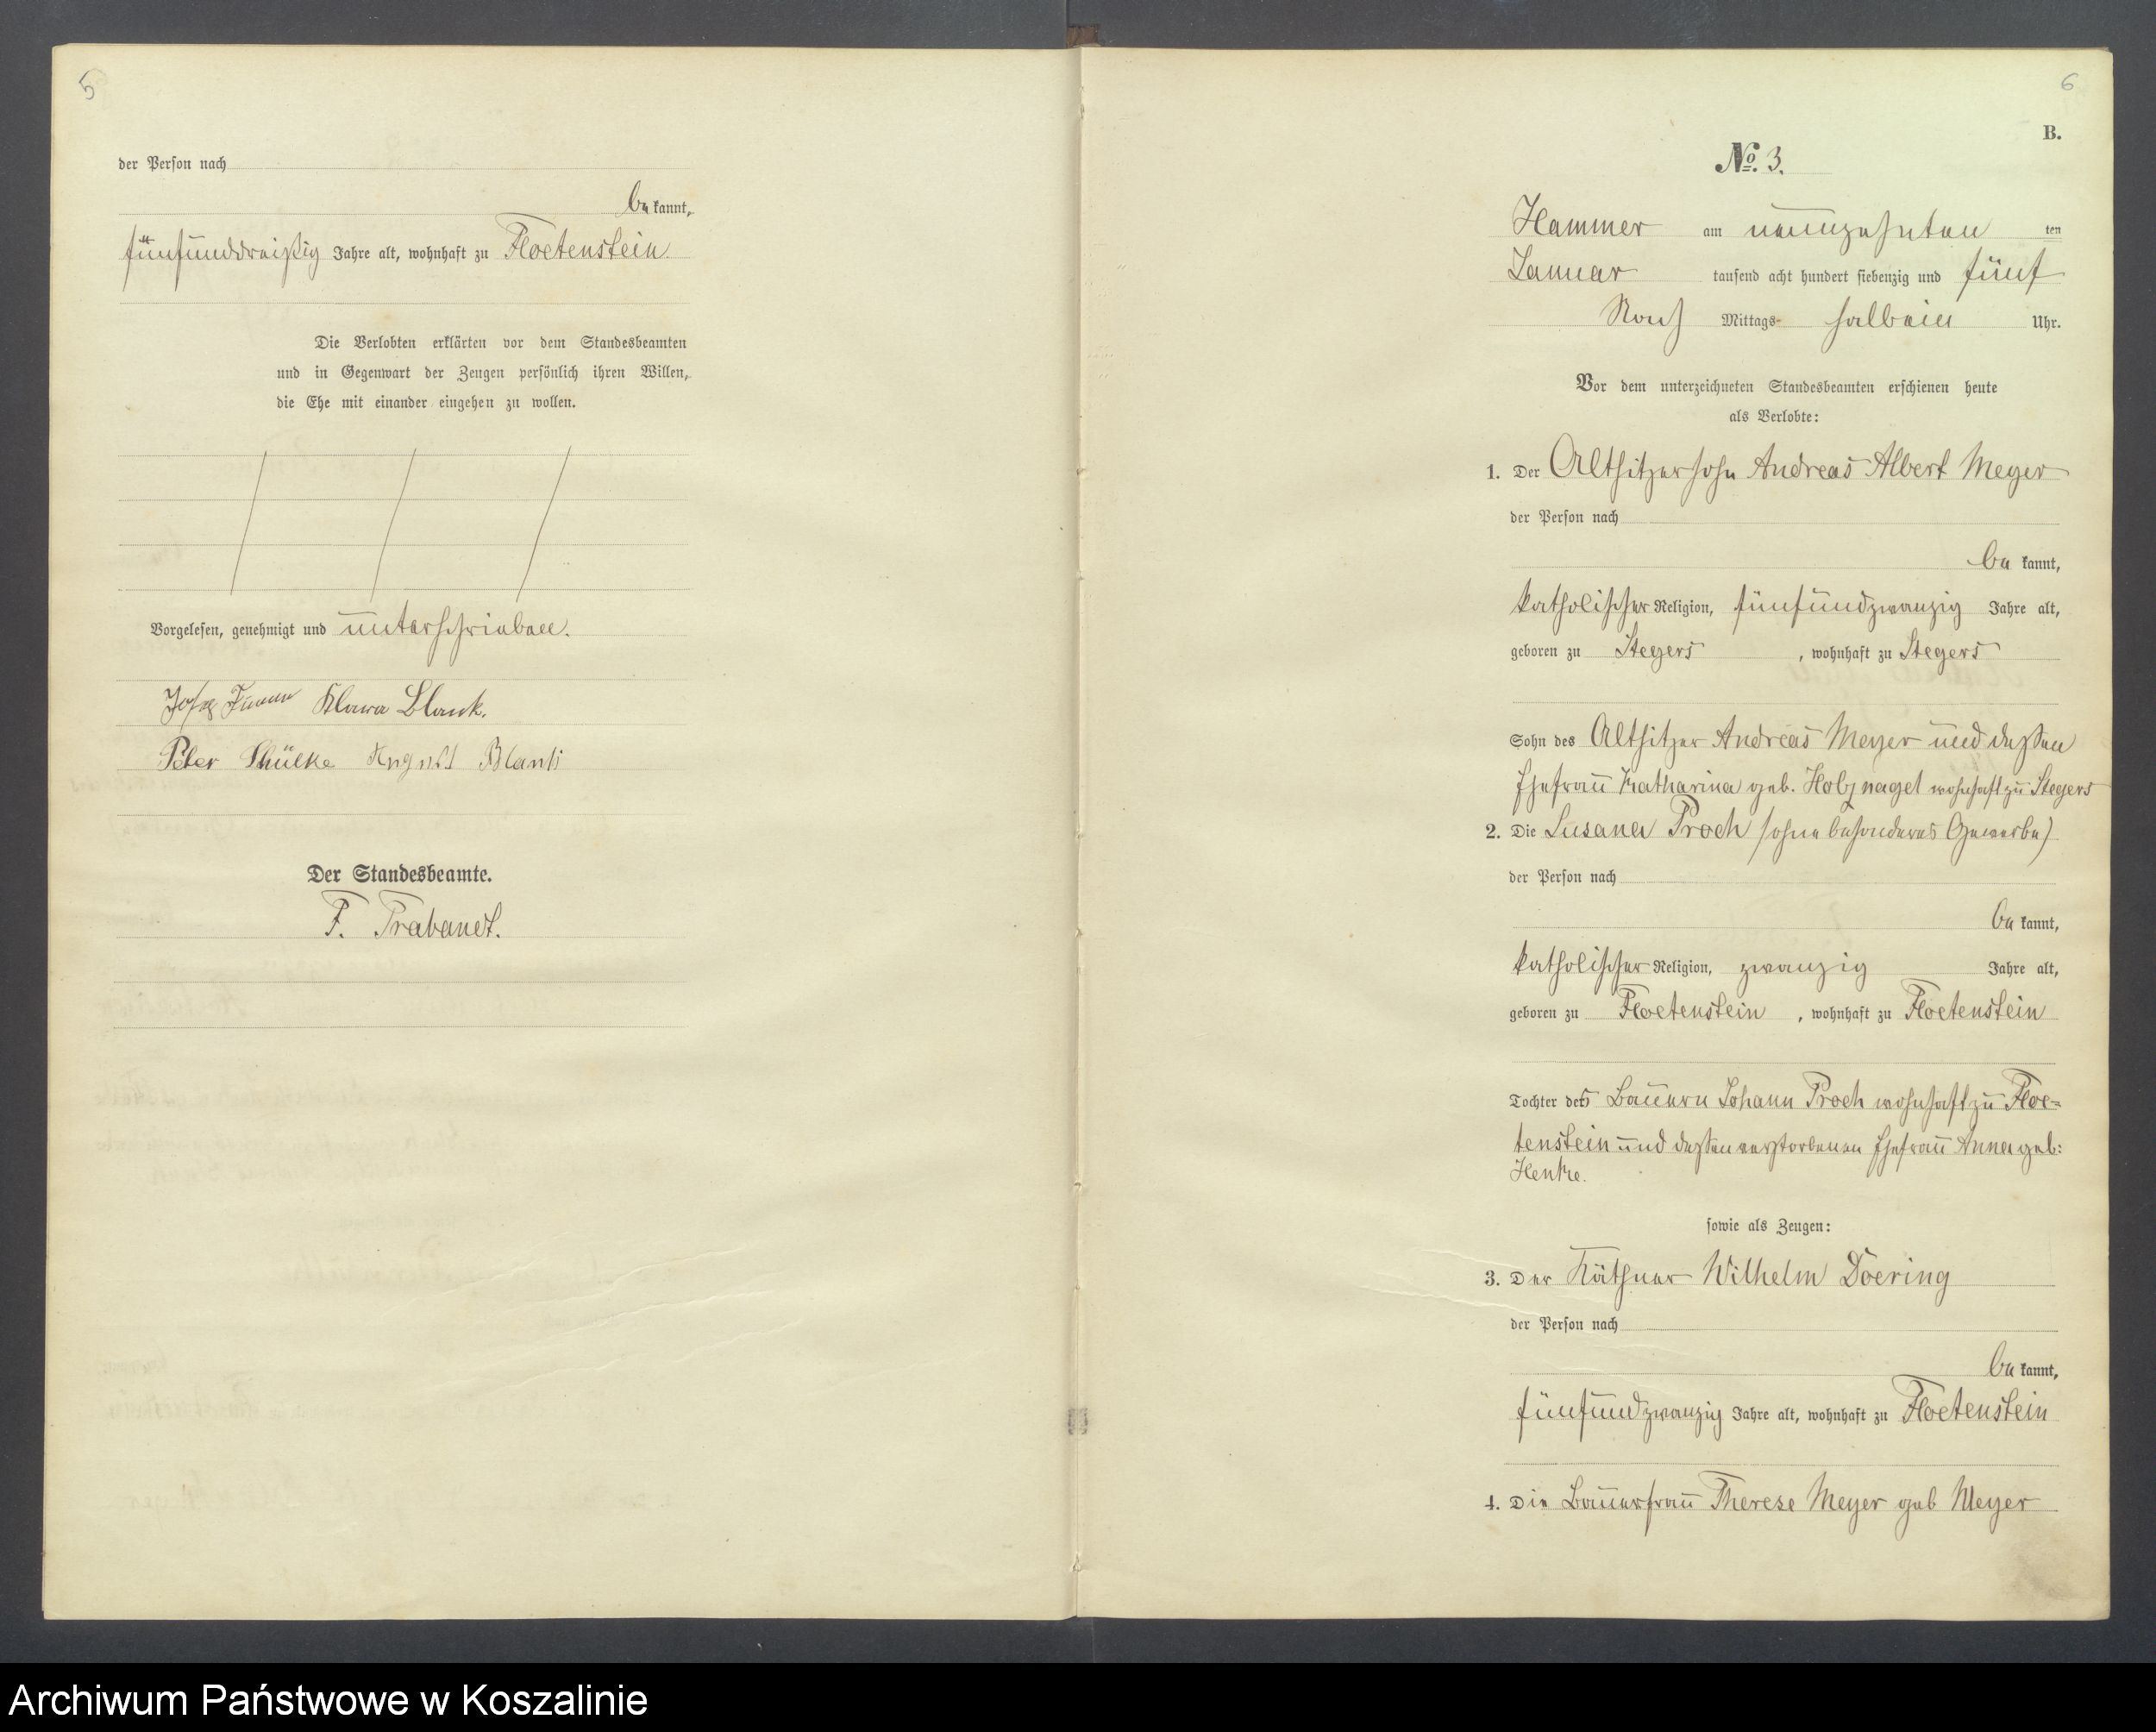 5
der Person nach
bekannt,
fünfunddreißig Jahre alt, wohnhaft zu Floetenstein
Die Verlobten erklärten vor dem Standesbeamten
und in Gegenwart der Zeugen persönlich ihren Willen,
die Ehe mit einander eingehen zu wollen.
Vorgelesen, genehmigt und unterschrieben.
Klara Blank.
Peter August Blank
Der Standesbeamte.
F. Trabandt.
6
B.
No. 3.
Hammer am neunzehnten ten
Januar tausend acht hundert siebenzig und fünf
Nach Mittags halbein Uhr.
Vor dem unterzeichneten Standesbeamten erschienen heute
als Verlobte:
1. Der Altsitzersohn Andreas Albert Meyer
der Person nach
bekannt,
katholischer Religion, fünfundzwanzig Jahre alt,
geboren zu Stegers, wohnhaft zu Stegers
Sohn des Altsitzer Andreas Meyer und dessen
Ehefrau Katharina geb. Holznagel wohnhaft zu Stegers
2. Die Susana Proch (ohne besonderes Gewerbe)
der Person nach
bekannt,
katholischer Religion, zwanzig Jahre alt,
geboren zu Floetenstein, wohnhaft zu Floetenstein
Tochter des Bauern Johann Proch wohnhaft zu Floe-
tenstein und dessen verstorbenen Ehefrau Anna geb:
Henke.
sowie als Zeugen:
3. Der Käthner Wilhelm Doering
der Person nach
bekannt,
fünfundzwanzig Jahre alt, wohnhaft zu Floetenstein
4. Die Bauerfrau Therese Meyer geb Meyer
Archiwum Państwowe w Koszalinie